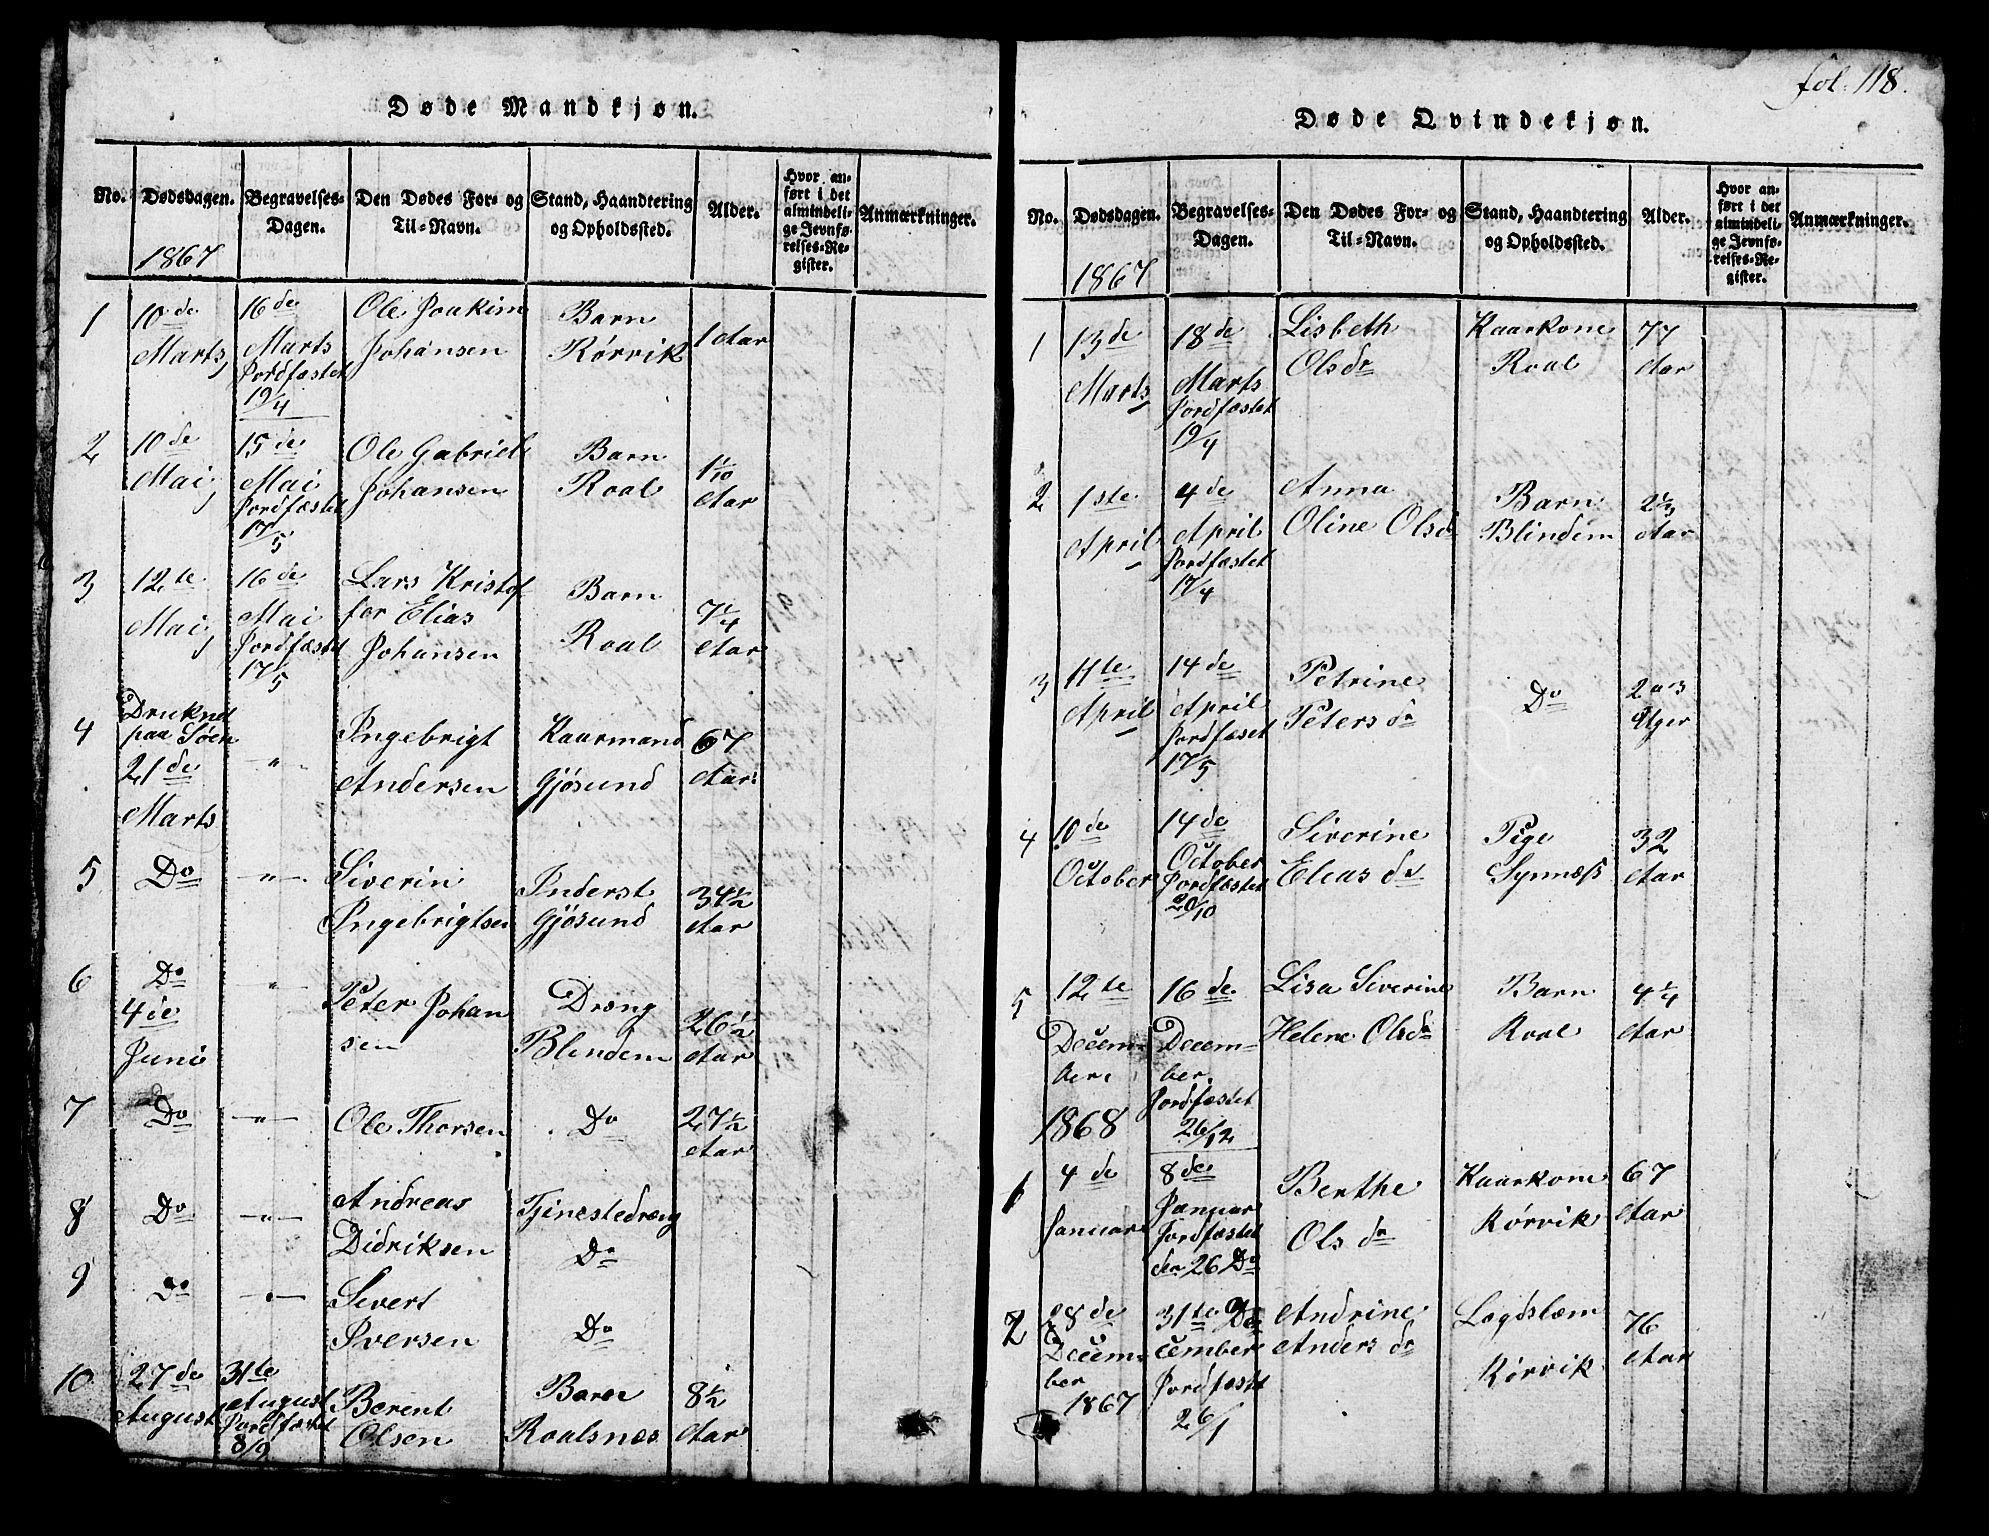 fol. 118.
Døde Mandkjøn.
No. Dødsdagen. Begravelses-Dagen. Den Dødes For- og Til-Navn. Stand, Haandtering og Opholdssted. Alder. Hvor anført i det almindelige Jevnførelses-Register. Anmærkninger.
1867
1 10de Marts, 16de Marts Jordfæstet 19/4 Ole Joakim Johansen Barn Rørvik 1 Aar
2 10de Mai, 15de Mai Jordfæstet 17/5 Ole Gabriel Johansen Barn Roal 1 1/10 Aar
3 12te Mai, 16de Mai Jordfæstet 17/5 Lars Kristoffer Elias Johansen Barn Roal 7 1/4 Aar
4 Druknet paa Søen 21de Marts " Ingebrigt Andersen Kaarmand Gjøsund 67 Aar
5 Do " Siverin Ingebrigtsen Inderst Gjøsund 34 1/2 Aar
6 Do 4de Juni " Peter Johansen Dræng Blindem 26 1/2 Aar
7 Do " Ole Thorsen Do 27 1/2 Aar
8 Do " Andreas Didriksen Tjinestedræng Do
9 Do " Sivert Iversen Do
10 27de August 31te August Jordfæstet 8/9 Berent Olsen Barn Roalsnes 8 1/2 Aar
Døde Qvindekjøn.
No. Dødsdagen. Begravelses-Dagen. Den Dødes For- og Til-Navn. Stand, Haandtering og Opholdssted. Alder. Hvor anført i det almindelige Jevnførelses-Register. Anmærkninger.
1867
1 13de Marts 18de Marts Jordfæstet 19/4 Lisbeth Olsdr Kaarkone Roal 77 Aar
2 1ste April 4de April Jordfæstet 17/4 Anna Oline Olsd Barn Blindem 2 1/3 Aar
3 11te April 14de April Jordfæset 17/5 Petrine Petersdr Do 2 a 3 Uger
4 10de October 14de October Jordfæstet 20/10 Siverine Eliasdr Pige Synnæss 32 Aar
5 12te December 16de December Jordfæstet 26/12 Lisa Siverine Helene Olsdr Barn Roal 4 1/4 Aar
1868
1 4de Januar 8de Januar Jordfæstet den 26 Do Berthe Olsdr Kaarkone Rørvik 67 Aar
2 28de December 1867 31te December Jordfæstet 26/1 Andrine Andersdr Lægdslem Rørvik 76 Aar